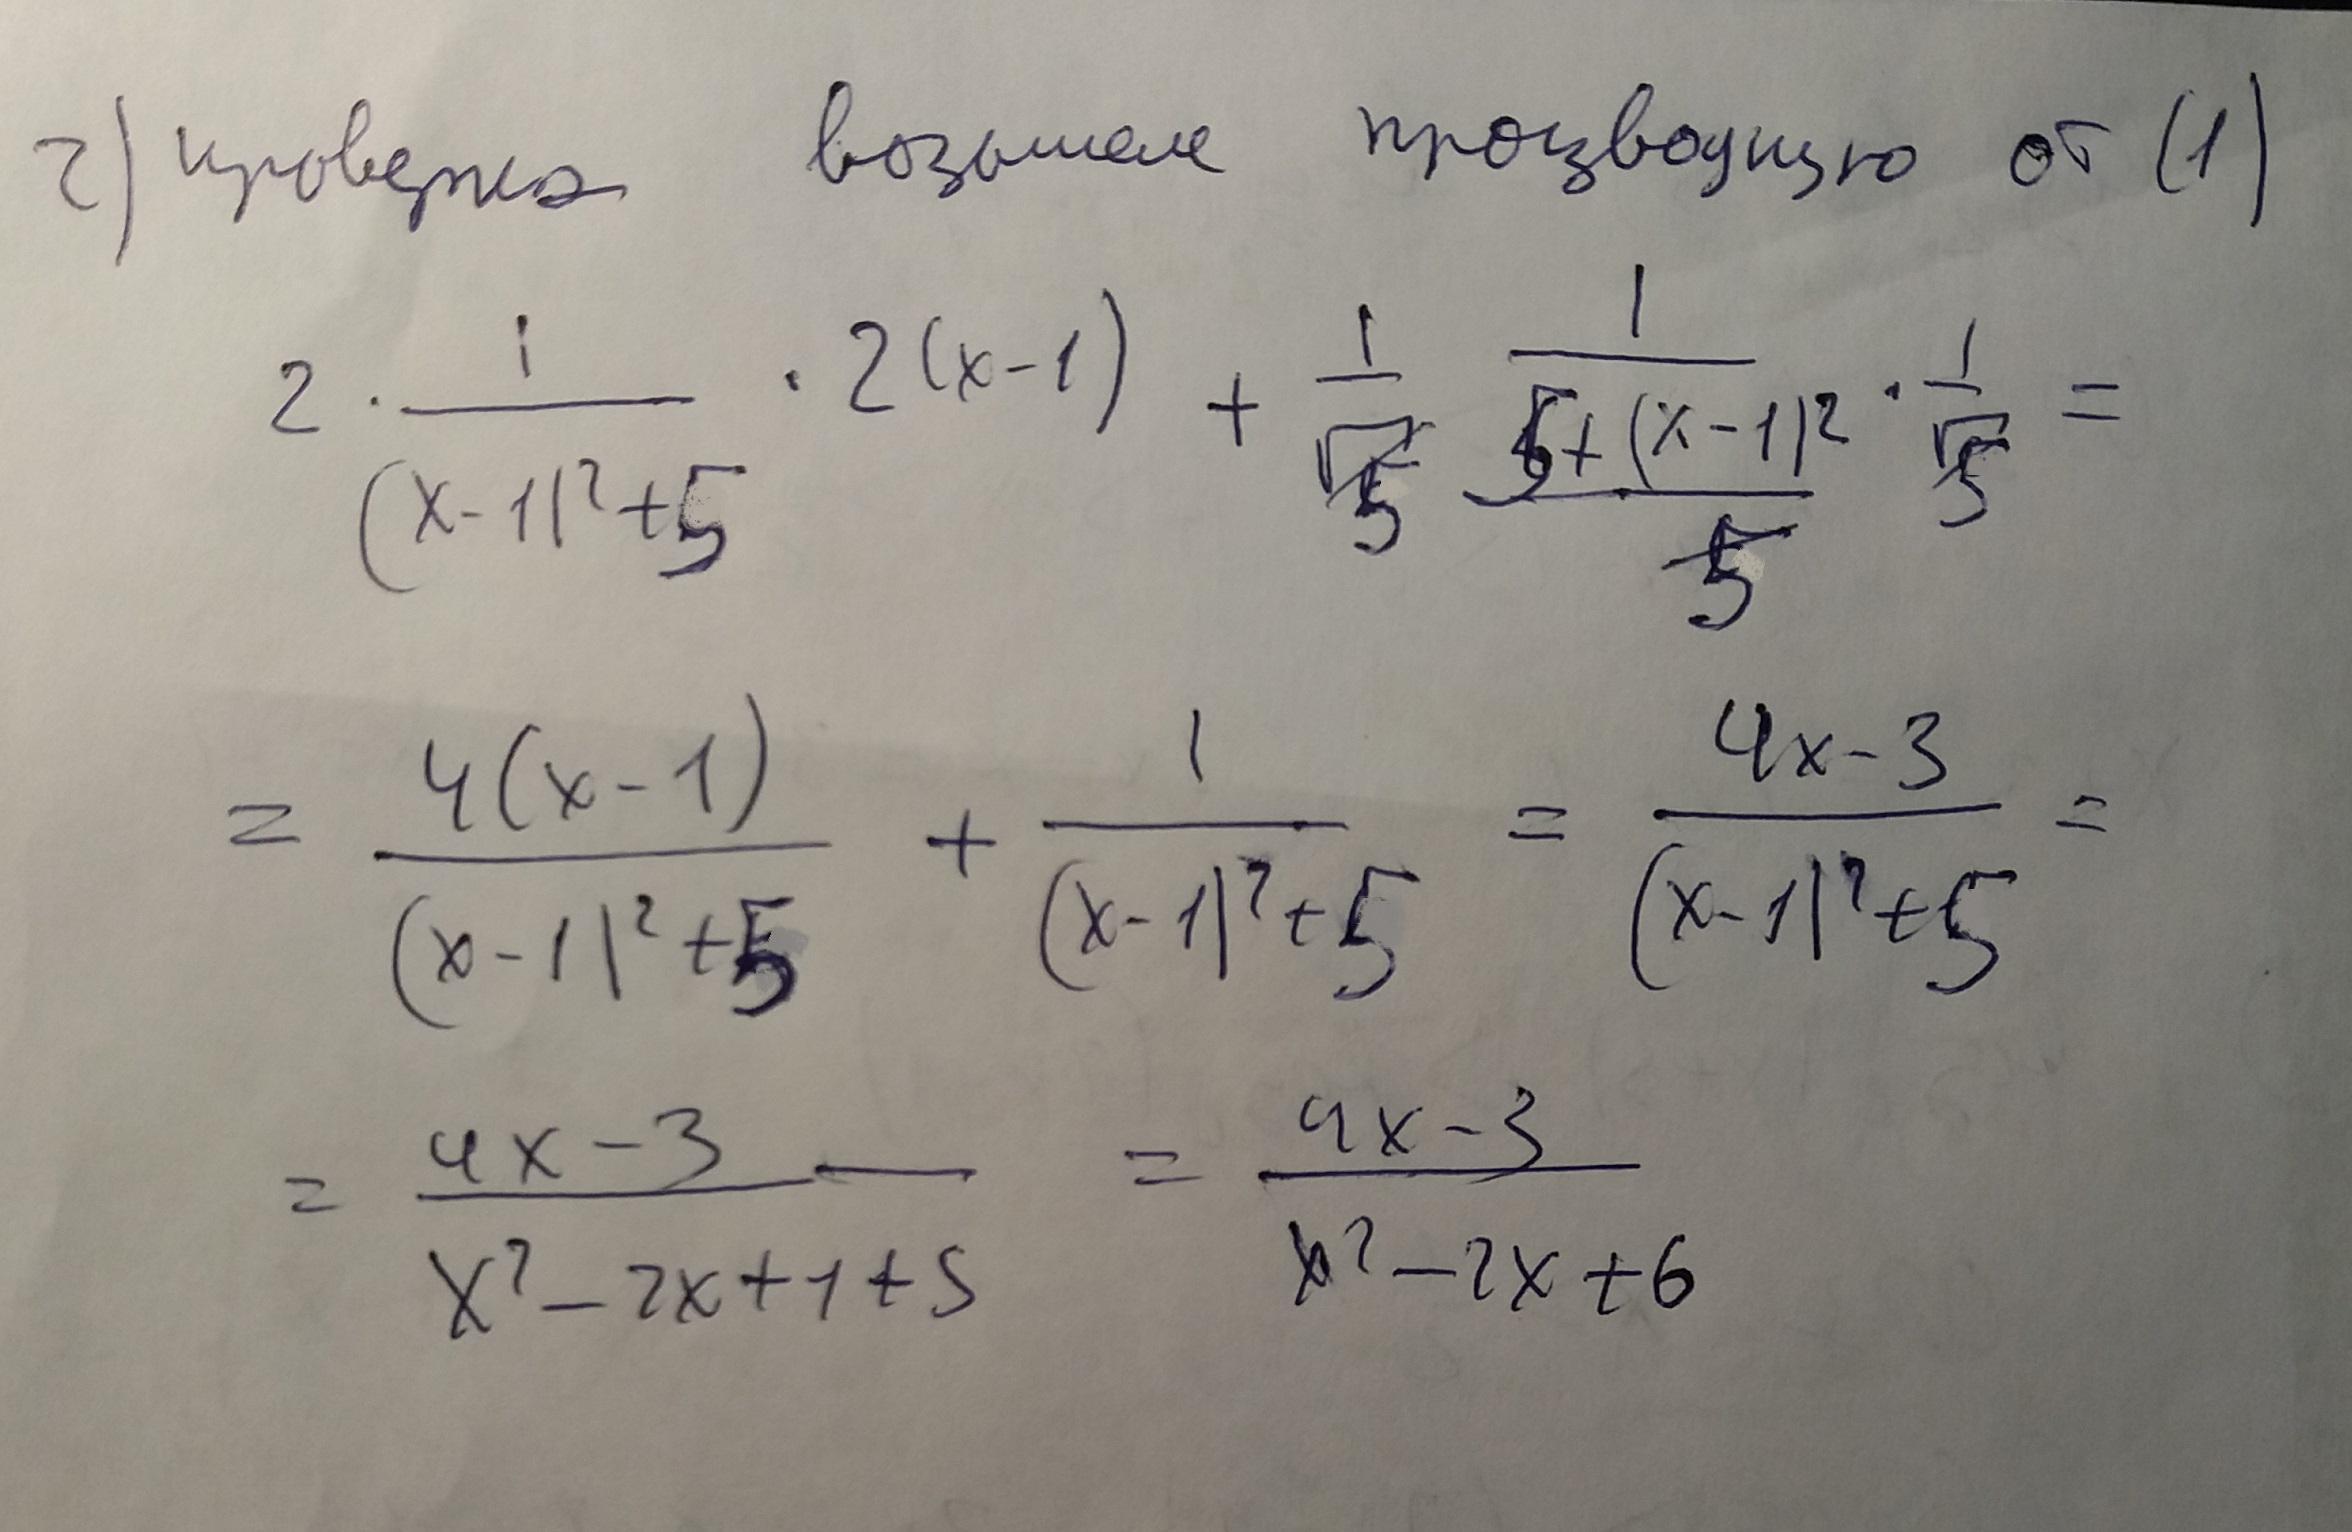 2) проверка возьмем производную от (1)
2 · 1/((x-1)²+5) · 2(x-1) + 1/√5 1/((5+(x-1)²)/5) · 1/√5 =
= 4(x-1)/((x-1)²+5) + 1/((x-1)²+5) = (4x-3)/((x-1)²+5) =
= (4x-3)/(x²-2x+1+5) = (4x-3)/(x²-2x+6)